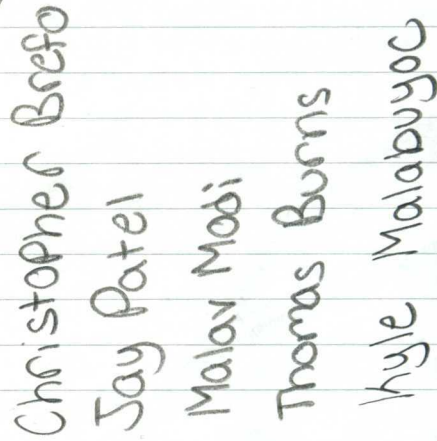 Christopher Brefo
Jay Patel
Malav Modi
Thomas Burns
Kyle Malabuyoc